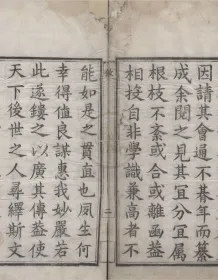 因請其會過不暮年而纂
成余閱之見其宜分宜属
根枝不紊或合或離函蓋
相投自非學識兼高者不
能如是之貫直也夙生何
幸得值良謀惠我妙嚴若
此遂鏤之以廣其傳益使
天下後世之人尋繹斯文
二